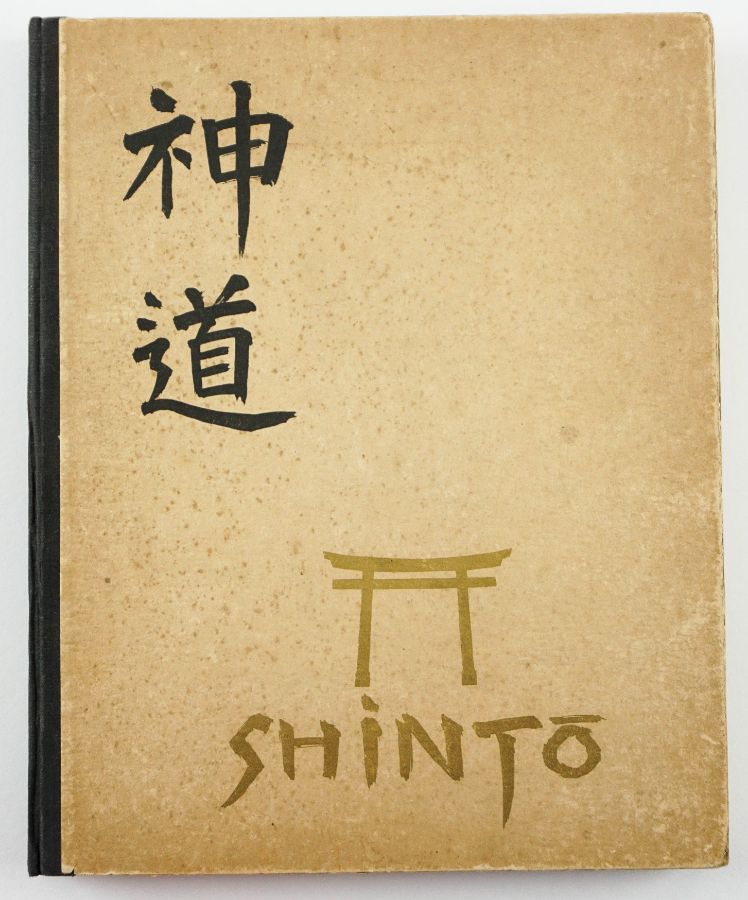 神道
SHiNTŌ